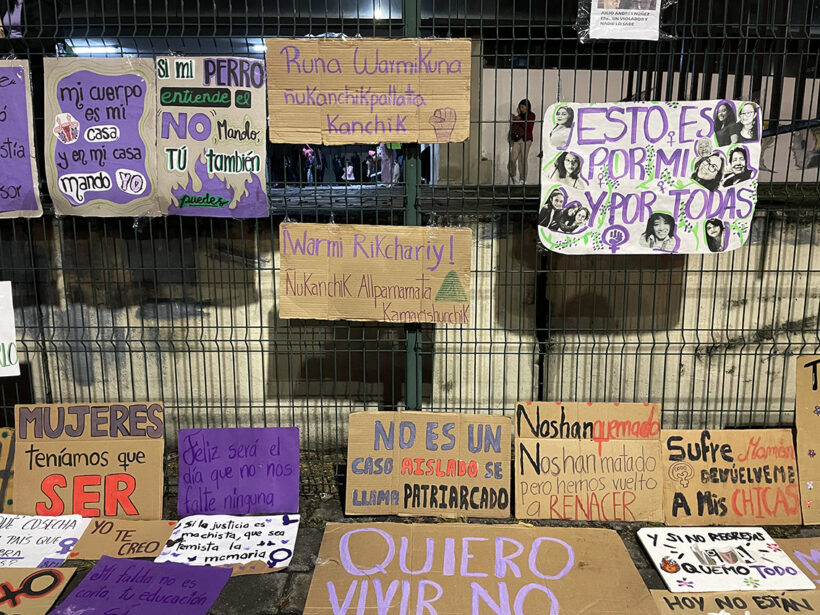 JULIO ANDRES NUÑEZ
UN VIOLADOR Y
NADIE LO SABE
mi cuerpo
es mi
casa
y en mi casa
mando yo
SI mi PERRO
entiende el
NO Mando,
TÚ también
puedes
Runa WarmiKuna
ñuKanchiKpallata
KanchiK
¡Warmi Rikchariy!
ÑuKanchiK Allpamamata
KamarishunchiK
ESTO ES
POR MI
Y POR TODAS
MUJERES
teníamos que
SER
Feliz será el
día que no nos
falte ninguna
NO ES UN
CASO AISLADO SE
LLAMA PATRIARCADO
Nos han quemado
Nos han matado
pero hemos vuelto
a RENACER
Sufre Mamon
DEVUÉLVEME
A Mis CHICAS
QUE COSECHA
PAIS QUE
YO TE
CREO
Si la justicia es
machista, que sea
femista la
memoria
Mi falda no es
corta, tu educación
QUIERO
VIVIR NO
Y SI NO REGRESAS
QUEMO TODO
HOY NO ESTÁN